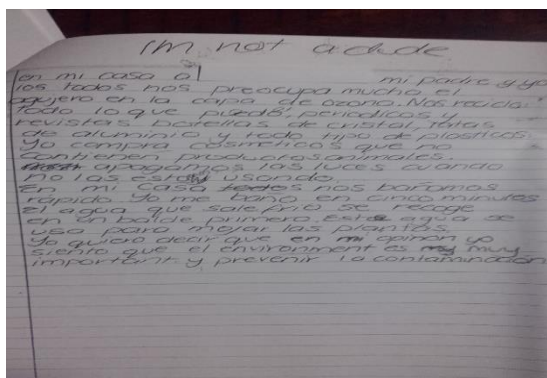 I'm not a dude.
en mi casa a mi padre y yo
los todos nos preocupa mucho el
agujero en la capa de ozono. Nos recicla
todo lo que puedo. periodicos, y
revistas botellas de cristal, latas
de aluminio y todo typo de plasticos.
Yo compra cosmeticos que no
contienen productos animales.
apagamos las luces cuando
no las estoy usando.
En mi casa todos nos bañamos
rápido yo me baño en cinco minutes
El agua que sale frio se recage
en un balde primero. Esta agua se
usa para mojar las plantas.
Yo quiero decir que en mi opinon yo
siento que el environment es muy
important y prevenir la contaminación